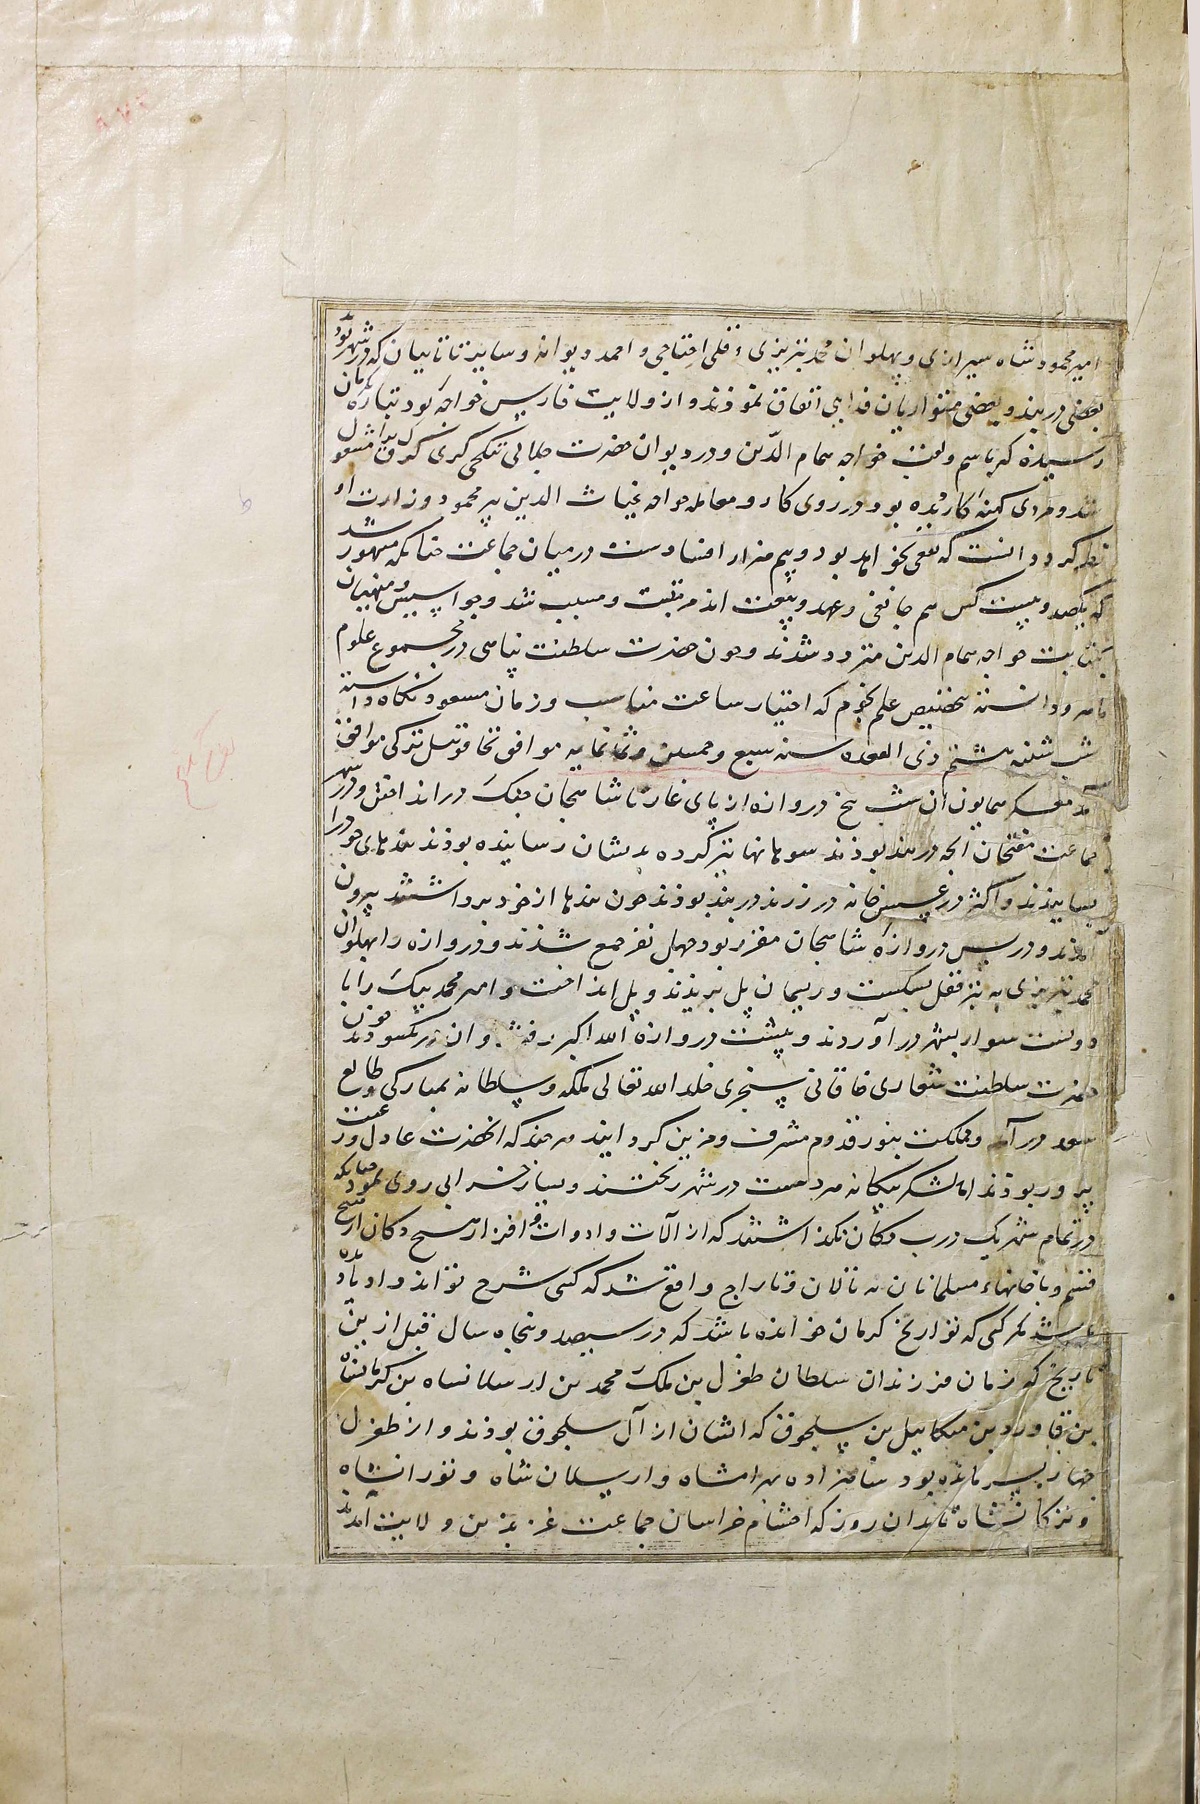 امیر محمود شاه سیرازی و پهلوان محمد تبریزی و قلی اختاجی و احمد دیوانه و سایر تاتابیان که در شهر بود
بعضی در بند و بعضی متواریان فدایی اتفاق نموذند و از ولایت فارس خواجه بود تبارکه کرمان
رسیذه که باسم ولقب خواجه همام الدّین و در دیوان حضرت جلالی
شد و مردی کهنه کار دیده بود در روی کار و معامله خواجه غیاث الدین پیر محمود و وزارت او
نظر کرد دانست که نفعی نخواهد بود و بیم هزار افتادست در میان جماعت چنانکه مشهور شد
که یکصد و بیست کس هم جانقی و عهد و بیعت اند مرتبت و مسبب شد و جواسیس و منهیان
بکتابت خواجه همام الدین متردد شدند و چون حضرت سلطنت پناهی در مجموع علوم
ماهر و دانسته بتخصیص علم نجوم که اختیار ساعت مناسب و زمان مسعود نگاه داشته
شب شنبه هشتم ذی القعده سنه سبع و خمسین و ثمانمایه موافق تخاقوئیل ترکی موافق
معسکر همایون آن شب یخ دروازه از پای غار تا شاهیجان جنک در انداختن و در شهر
جماعت مفتحان آنجه در بند بودند سوهانها تیز کرده بدیشان رسانیده بودند بندهای خود را
بسایندند و اکثر در عسس خانه در زرند در بند بودند چون بندها از خود برداشتند بیرون
آمدند و در پس دروازه شاهیجان مقرر بود چهل نفر جمع شدند و دروازه را پهلوان
محمد تبریزی به تبر قفل بشکست و ریسمان پل ببریدند و پل انداخت و امیر محمد بیک را با
دویست سوار بشهر درآوردند و پشت دروازه الله اکبر رفتند و آن در بکشودند چون
حضرت سلطنت شعاری خاقانی سنجری خلد الله تعالی ملکه و سلطانه بمبارکی و طالع
سعد درآمد و مملکت بنور قدوم مشرف و مزین کردانیند هر چند که آنحضرت عادل و رعیت
پرور بوذند اما لشکر بیکانه هر دست در شهر ریختند و بسیار خرابی روی نمود چنانکه
در تمام شهر یک درب دکان نکذاشتند که از آلات و ادوات و افزار هیچ دکان از هیچ
قسم و با خانهاء مسلمانان نه تالان و تاراج واقع شد که کسی شرح تواند داد یاد
باشد مکر کسی که تواریخ کرمان خوانده باشد که در سیصد و پنجاه سال قبل از این
تاریخ که زمان فرزندان سلطان طغرل بن ملک محمد بن ارسلانشاه بن کرمانشاه
بن قاورد بن میکاییل بن سلجوق که ایشان از آل سلجوق بوذند و از طغرل
چهار پسر مانده بود شاهزاده بهرامشاه و ارسلان شاه و تورانشاه
و ترکانشاه تا بدان روز که احشام خراسان جماعت غز بدین ولایت آمدند